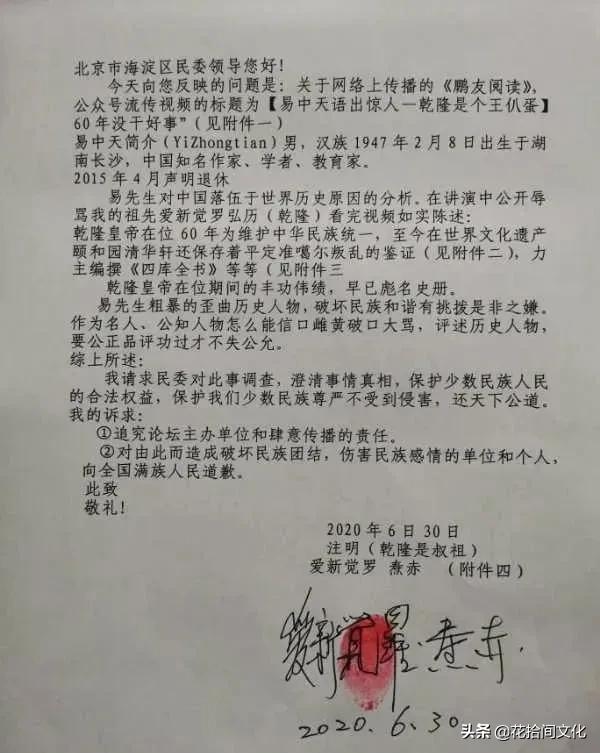 北京市海淀区民委领导您好！
今天向您反映的问题是：关于网络上传播的《鹏友阅读》，
公众号流传视频的标题为【易中天语出惊人—乾隆是个王仈蛋】
60年没干好事”（见附件一）
易中天简介（YiZhongtian）男，汉族1947年2月8日出生于湖
南长沙，中国知名作家、学者、教育家。
2015年4月声明退休
易先生对中国落伍于世界历史原因的分析。在讲演中公开辱
骂我的祖先爱新觉罗弘历（乾隆）看完视频如实陈述：
乾隆皇帝在位60年为维护中华民族统一，至今在世界文化遗产
颐和园清华轩还保存着平定准噶尔叛乱的鉴证（见附件二），力
主编撰《四库全书》等等（见附件三
乾隆皇帝在位期间的丰功伟绩，早已彪名史册。
易先生粗暴的歪曲历史人物，破坏民族和谐有挑拨是非之嫌。
作为名人、公知人物怎么能信口雌黄破口大骂，评述历史人物，
要公正品评功过才不失公允。
综上所述：
我请求民委对此事调查，澄清事情真相，保护少数民族人民
的合法权益，保护我们少数民族尊严不受到侵害，还天下公道。
我的诉求：
①追究论坛主办单位和肆意传播的责任。
②对由此而造成破坏民族团结，伤害民族感情的单位和个人，
向全国满族人民道歉。
此致
敬礼！
2020年6月30日
注明（乾隆是叔祖）
爱新觉罗 焘赤 （附件四）
爱新觉罗·焘赤.
2020.6.30
头条 @花拾间文化